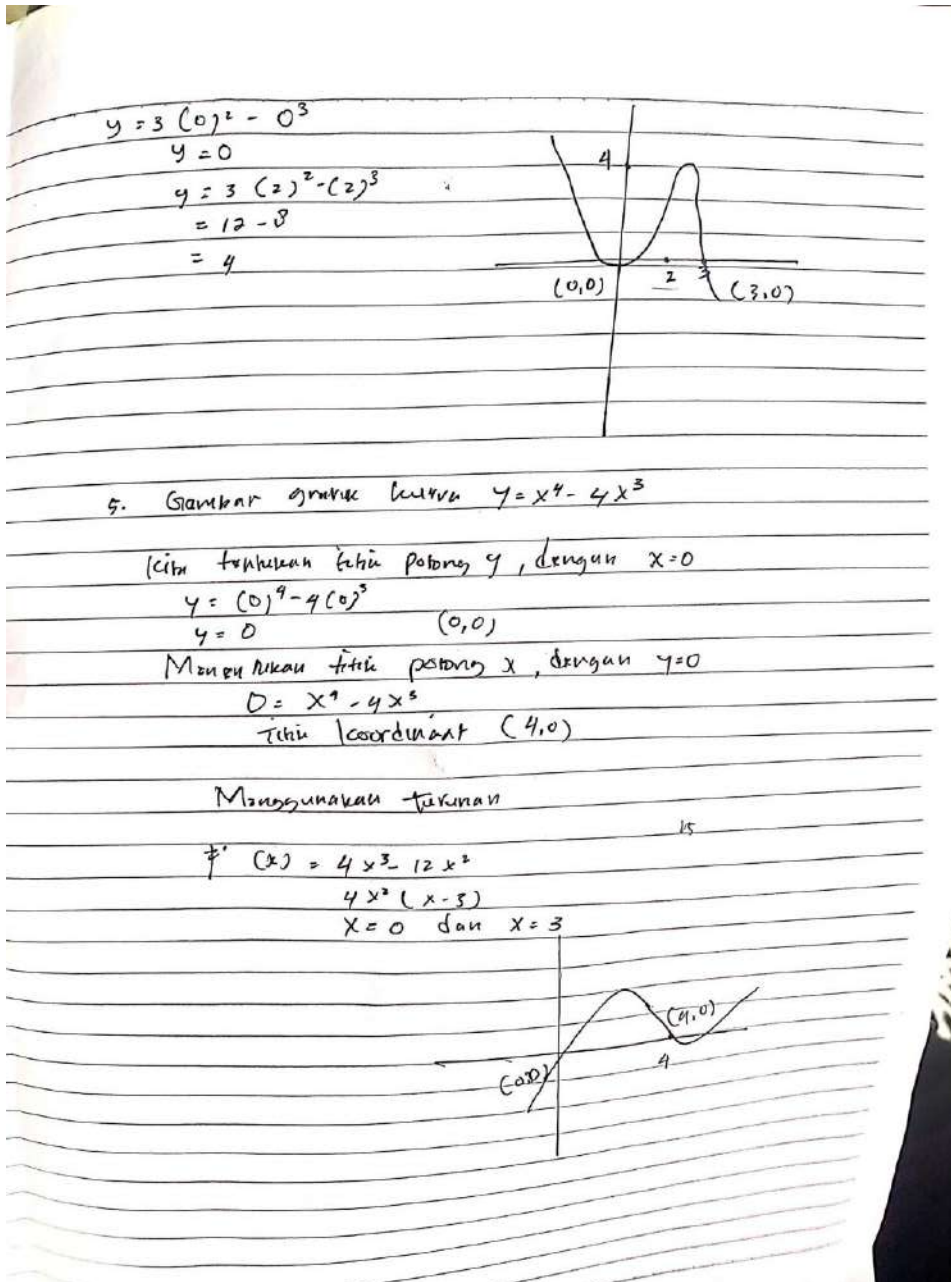 y = 3 (0)² - 0³
y = 0
y = 3 (2)² - (2)³
= 12 - 8
= 4
4
(0,0)
2
3
(3,0)
5. Gambar grafik kurva y = x⁴ - 4x³
Kita tentukan titik potong y, dengan x=0
y = (0)⁴ - 4(0)³
y = 0 (0,0)
Menentukan titik potong x, dengan y=0
0 = x⁴ - 4x³
Titik koordinant (4,0)
Menggunakan turunan
15
f' (x) = 4x³ - 12x²
4x² (x-3)
x = 0 dan x = 3
(4,0)
4
(0,0)